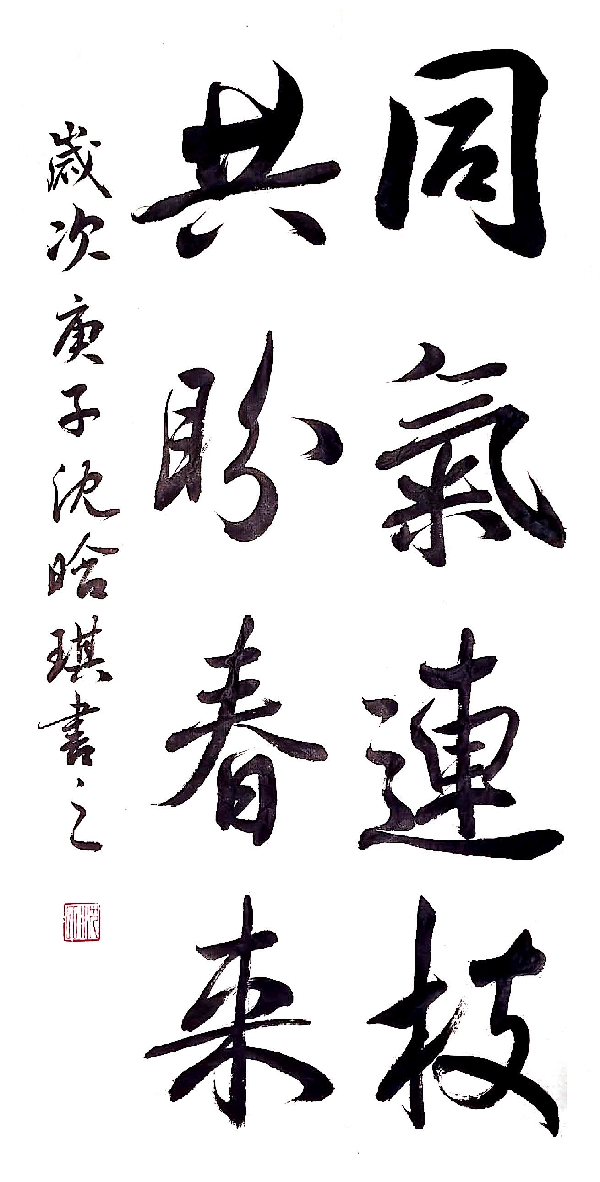 同氣連枝
共盼春来
歲次庚子沈晗琪書之